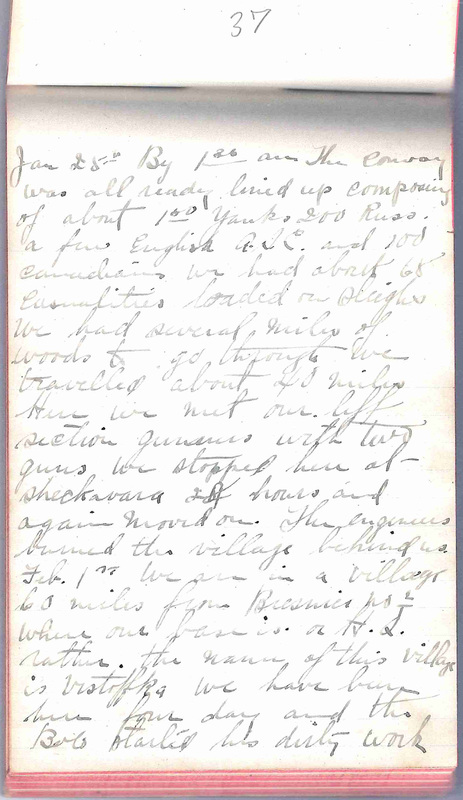 37
Jan 25th By 1 30 am The convoy
was all ready lined up composing
of about 100 Yanks 200 Russ.
a few English A.S.C. and 100
canadians we had about 68
casualities loaded on sleighs
We had several miles of
woods to go through we
travelled about 40 miles
Here we met our left
section gunners with two
guns. we stopped here at
sheckavara hours and
again moved on. The engineers
burned the village behind us.
Feb. 1st We are in a village
60 miles from Beresnic
where our base is. or H.Q.
rather. the name of this village
is Vistofka we have been
here four day and the
Bolo started his dirty work